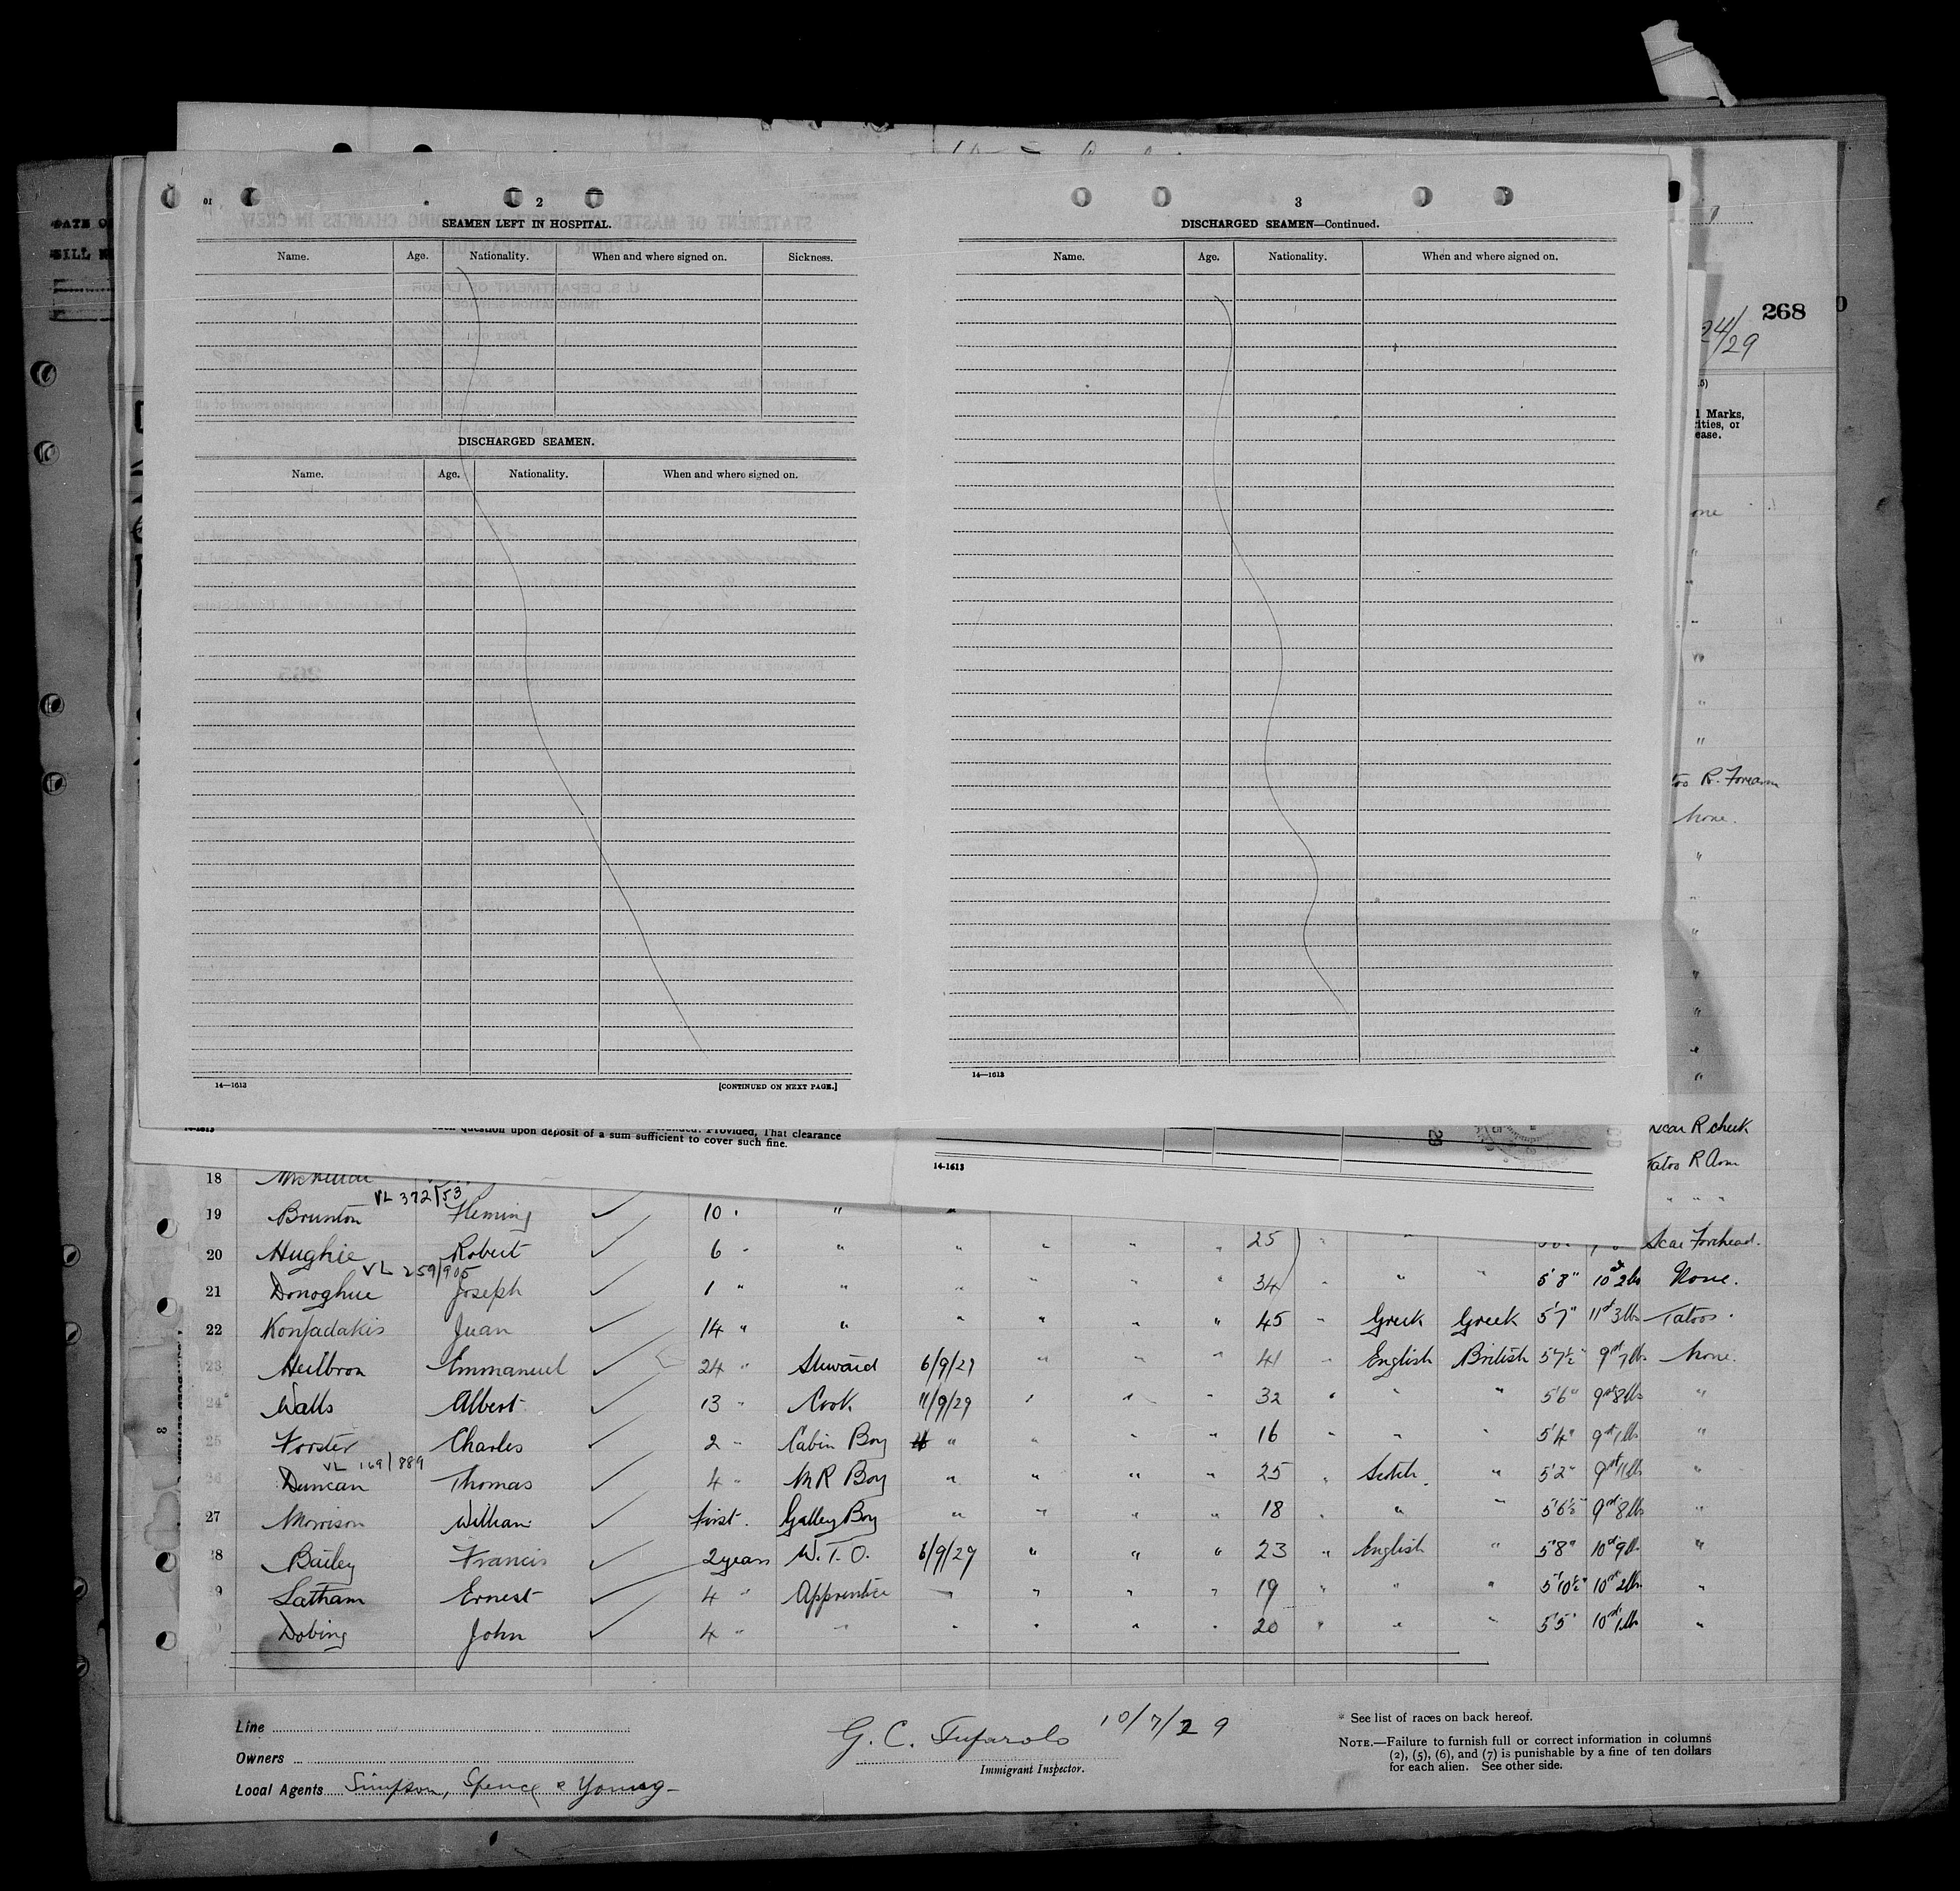 2
SEAMEN LEFT IN HOSPITAL.
Name. Age. Nationality. When and where signed on. Sickness.
DISCHARGED SEAMEN.
Name. Age. Nationality. When and where signed on.
14—1613 [CONTINUED ON NEXT PAGE.]
3
DISCHARGED SEAMEN—Continued.
Name. Age. Nationality. When and where signed on.
14—1613
268
24/29
Marks,
ease.
R. Forearm
None.
question upon deposit of a sum sufficient to cover such fine. Provided, That clearance
14-1613
Scar R cheek
Tatoo R Arm
18
VL 372/53
19 Brunton Fleming ✓ 10 " "
20 Hughie Robert ✓ 6 " " " " " " 25 " " Scar Forehead.
VL 259/905
21 Donoghue Joseph ✓ 1 " " " " " " 34 " " " 5'8" 10st 2lbs None.
22 Konfadakis Juan ✓ 14 " " " " " " 45 " Greek Greek 5'7" 11st 3lbs Tatoos.
23 Heilbron Emmanuel ✓ 24 " Steward 6/9/29 " " " 41 " English British 5'7½" 9st 7lbs None.
24 Walls Albert ✓ 13 " Cook 11/9/29 " " " 32 " " " 5'6" 9st 8lbs "
25 Forster Charles ✓ 2 " Cabin Boy " " " " 16 " " " 5'4" 9st 1lb "
VL 169/889
26 Duncan Thomas ✓ 4 " M R Boy " " " " 25 " Scotch " 5'2" 9st 11lbs "
27 Morrison William ✓ First. Galley Boy " " " " 18 " " " 5'6½" 9st 8lbs "
28 Bailey Francis ✓ 2 years W.T.O. 6/9/29 " " " 23 " English " 5'8" 10st 9lb "
9 Latham Ernest ✓ 4 " Apprentice " " " " 19 " " " 5'10½" 10st 2lb "
Dobing John ✓ 4 " " " " " " 20 " " " 5'5" 10st 1lb "
Line
Owners
Local Agents Simpson, Spence & Young
G. C. Tufarolo 10/7/29
Immigrant Inspector.
* See list of races on back hereof.
NOTE.—Failure to furnish full or correct information in columns
(2), (5), (6), and (7) is punishable by a fine of ten dollars
for each alien. See other side.